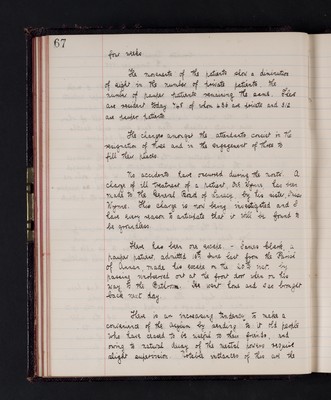 67
few weeks.
The movements of the patients show a diminution
of eight in the number of private patients, the
number of pauper patients remaining the same. There
are resident today 768 of whom are private and
are pauper patients.
The changes amongst the attendants consist in the
resignation of three and in the engagement of three to
fill their places.
No accidents have occurred during the month. A
charge of ill treatment of a patient, has been
made to the General Board of Lunacy, by his sister, Miss
This charge is now being investigated and I
have every reason to anticipate that it will be found to
be groundless.
There has been one escape. - James a
pauper patient, admitted 15th June last from the Parish
of Annan, made his escape on the inst. by
passing unobserved out at the front door when on his
way to the Bathroom. He went home and was brought
back next day.
There is an increasing tendency to make a
convenience of the Asylum by sending to it old people
who have ceased to be useful to their friends, and
owing to natural decay of the mental powers require
slight supervision. Notable instances of this are the